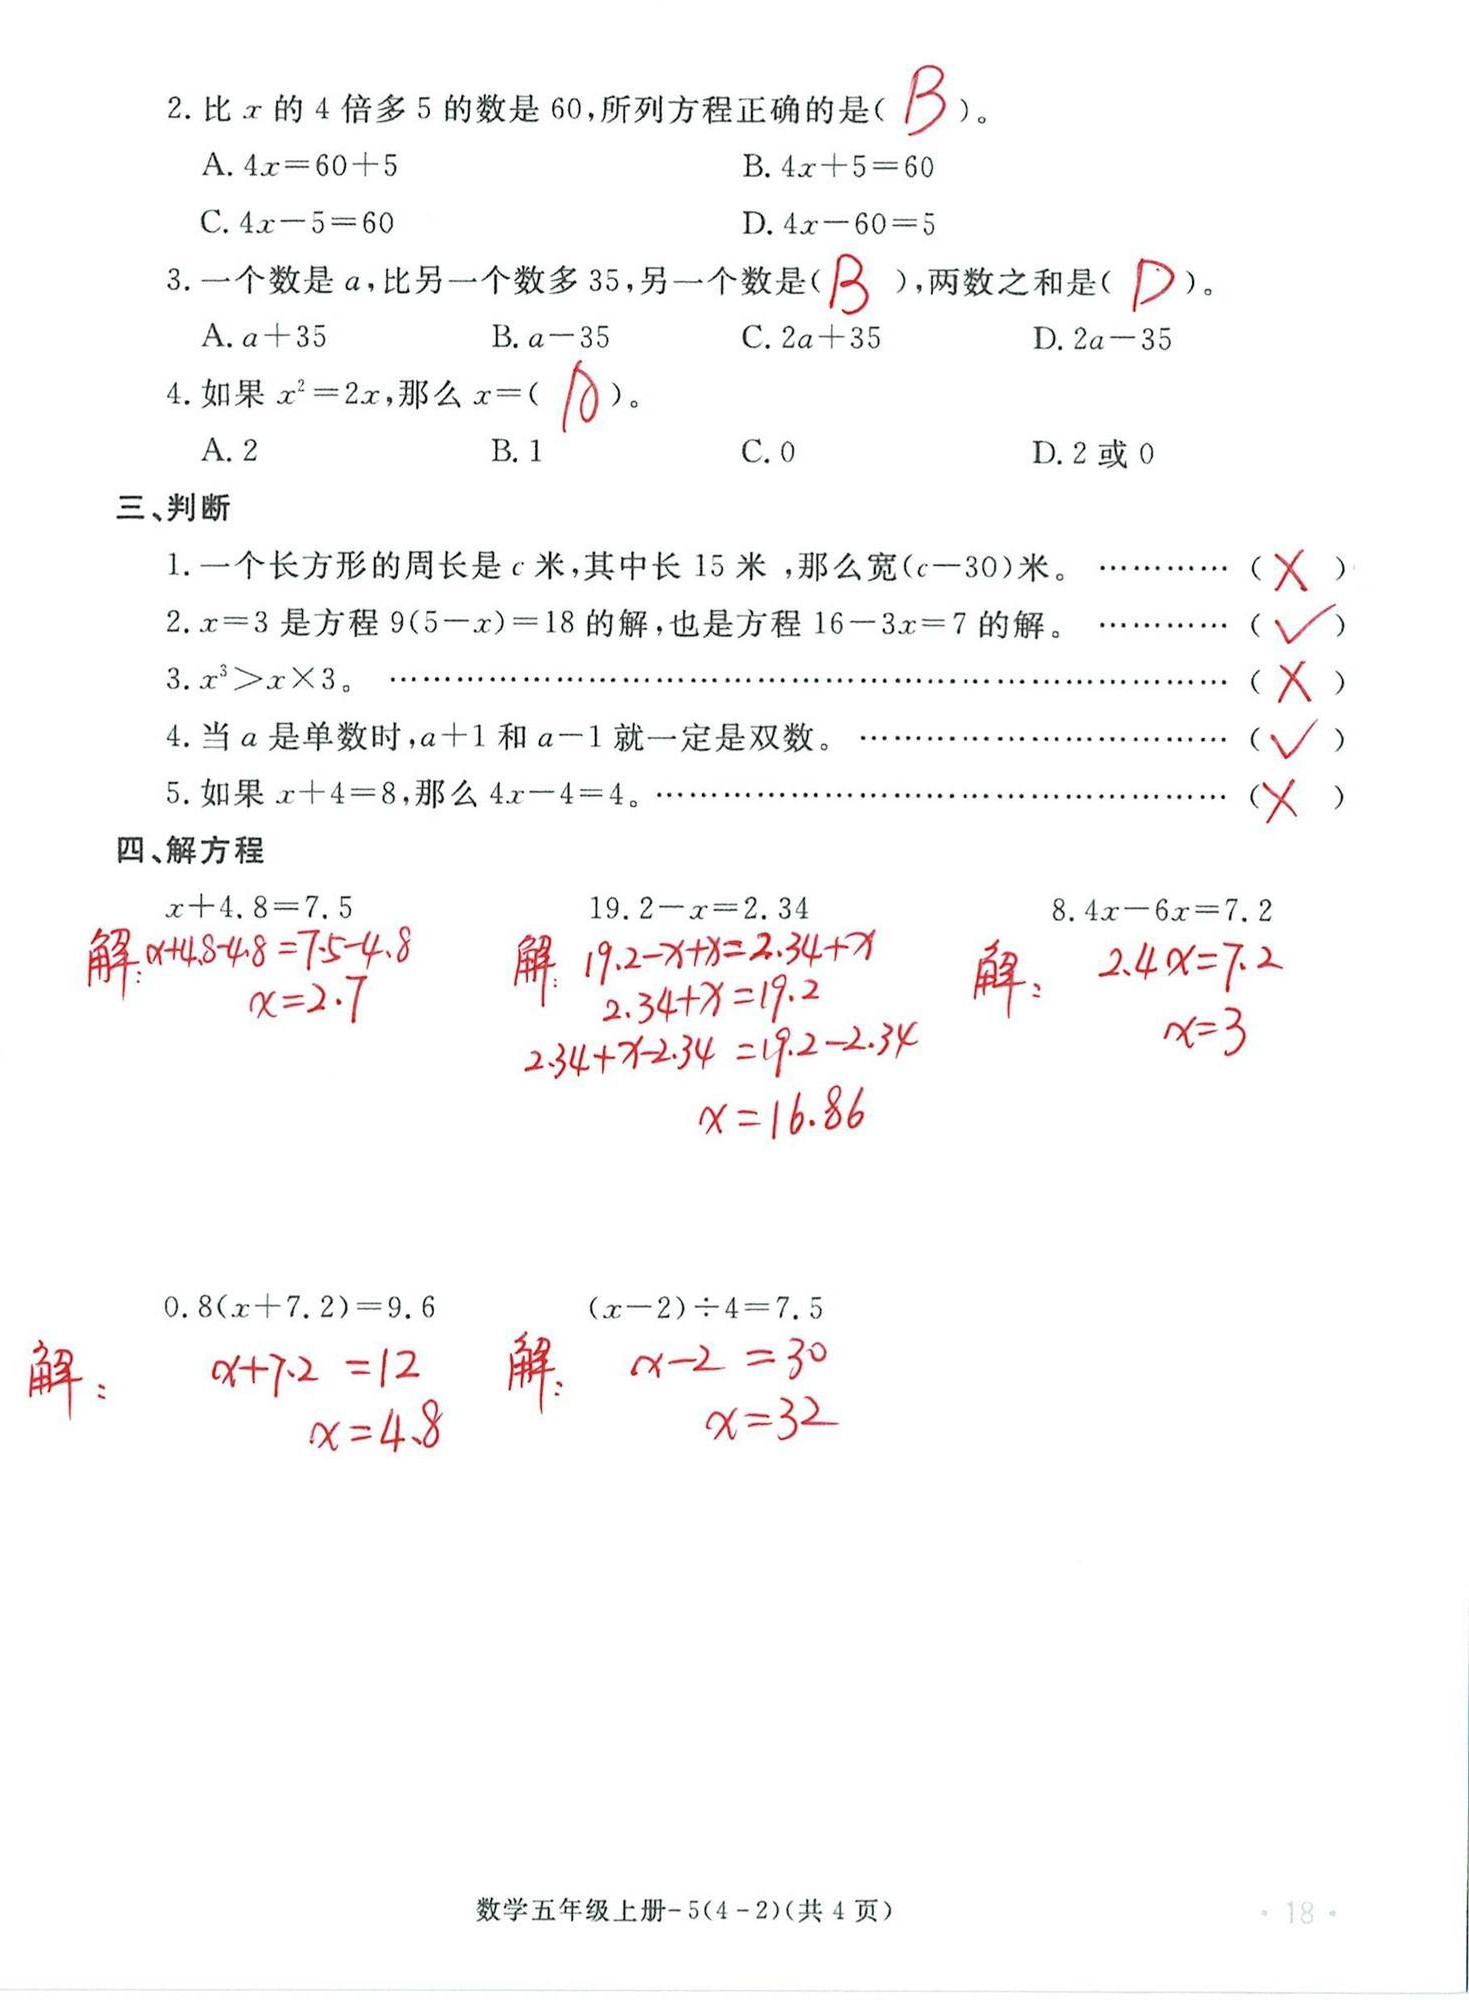 2. 比 x 的 4 倍多 5 的数是 60,所列方程正确的是( B )。
A. 4x=60+5 B. 4x+5=60
C. 4x-5=60 D. 4x-60=5
3. 一个数是 a,比另一个数多 35,另一个数是( B ),两数之和是( D )。
A. a+35 B. a-35 C. 2a+35 D. 2a-35
4. 如果 x²=2x,那么 x=( D )。
A. 2 B. 1 C. 0 D. 2 或 0
三、判断
1. 一个长方形的周长是 c 米,其中长 15 米 ,那么宽(c-30)米。 ………… ( × )
2. x=3 是方程 9(5-x)=18 的解,也是方程 16-3x=7 的解。 ………… ( ✓ )
3. x³>x×3。 ………………………………………………………………… ( × )
4. 当 a 是单数时,a+1 和 a-1 就一定是双数。 …………………………… ( ✓ )
5. 如果 x+4=8,那么 4x-4=4。 …………………………………………… ( × )
四、解方程
x+4.8=7.5 19.2-x=2.34 8.4x-6x=7.2
解:x+4.8-4.8=7.5-4.8 解: 19.2-x+x=2.34+x 解: 2.4x=7.2
x=2.7 2.34+x=19.2 x=3
2.34+x-2.34=19.2-2.34
x=16.86
0.8(x+7.2)=9.6 (x-2)÷4=7.5
解: x+7.2=12 解: x-2=30
x=4.8 x=32
数学五年级上册-5(4-2)(共 4 页)
·18·